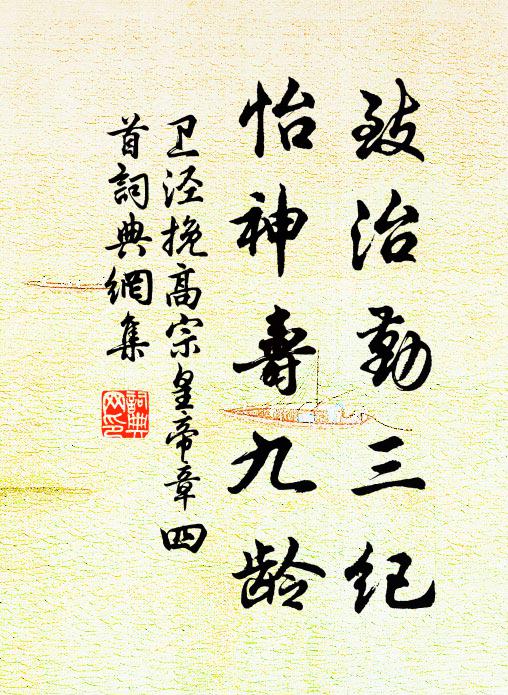 致治勤三纪
怡神寿九龄
卫泾挽高宗皇帝章四
首词典网集
词典网印